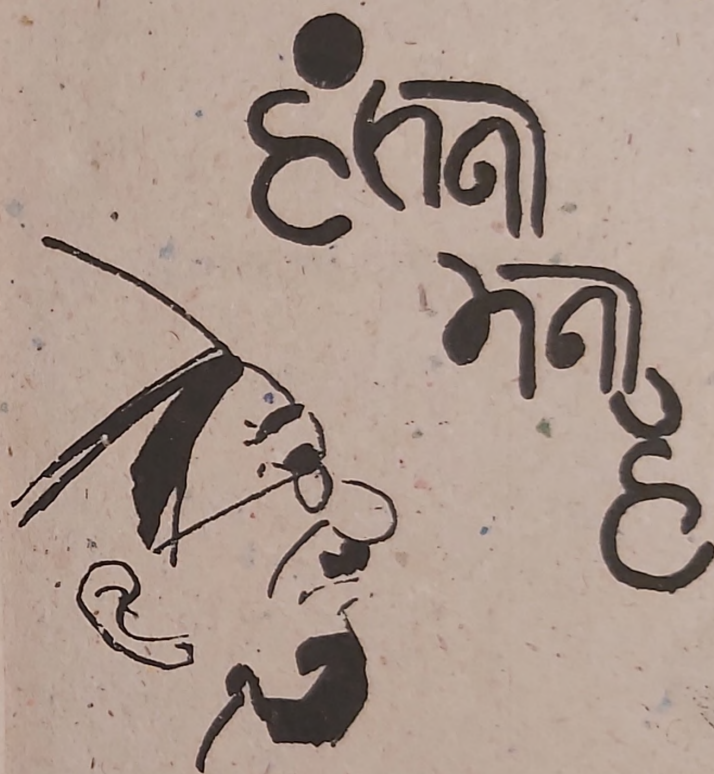 हंसना
मना
है